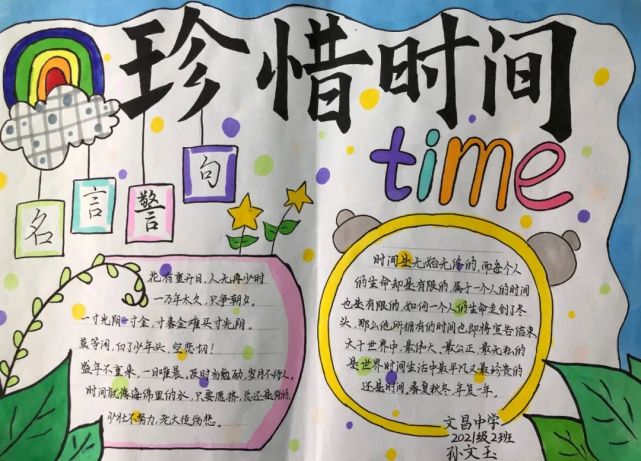 珍惜时间
time
名言警句
花有重开日，人无再少时
一万年太久，只争朝夕。
一寸光阴一寸金，寸金难买寸光阴。
莫等闲，白了少年头，空悲切！
盛年不重来，一日难晨，及时当勉励，岁月不待人。
时间就像海绵里的水，只要愿挤，总还是有的。
少壮不努力，老大徒伤悲。
时间是无始无终的，而每个人
的生命却是有限的，属于一个人的时间
也是有限的，如何一个人的生命走到了尽
头，那么他所拥有的时间也即将宣告结束
大千世界中，最伟大、最公正、最无私的
是世界时间生活中最平凡又最珍贵的
还是时间，春夏秋冬，年复一年。
文昌中学
2021级2班
孙文玉